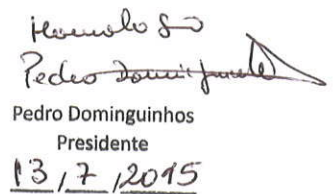 Homologo
Pedro Dominguinhos
Pedro Dominguinhos
Presidente
13/7/2015